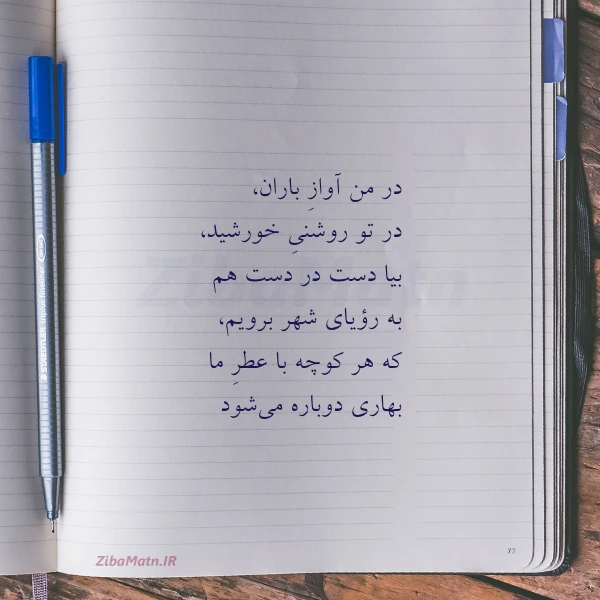 در من آوازِ باران،
در تو روشنیِ خورشید،
بیا دست در دست هم
به رؤیای شهر برویم،
که هر کوچه با عطرِ ما
بهاری دوباره می‌شود
ZibaMatn
ZibaMatn.IR